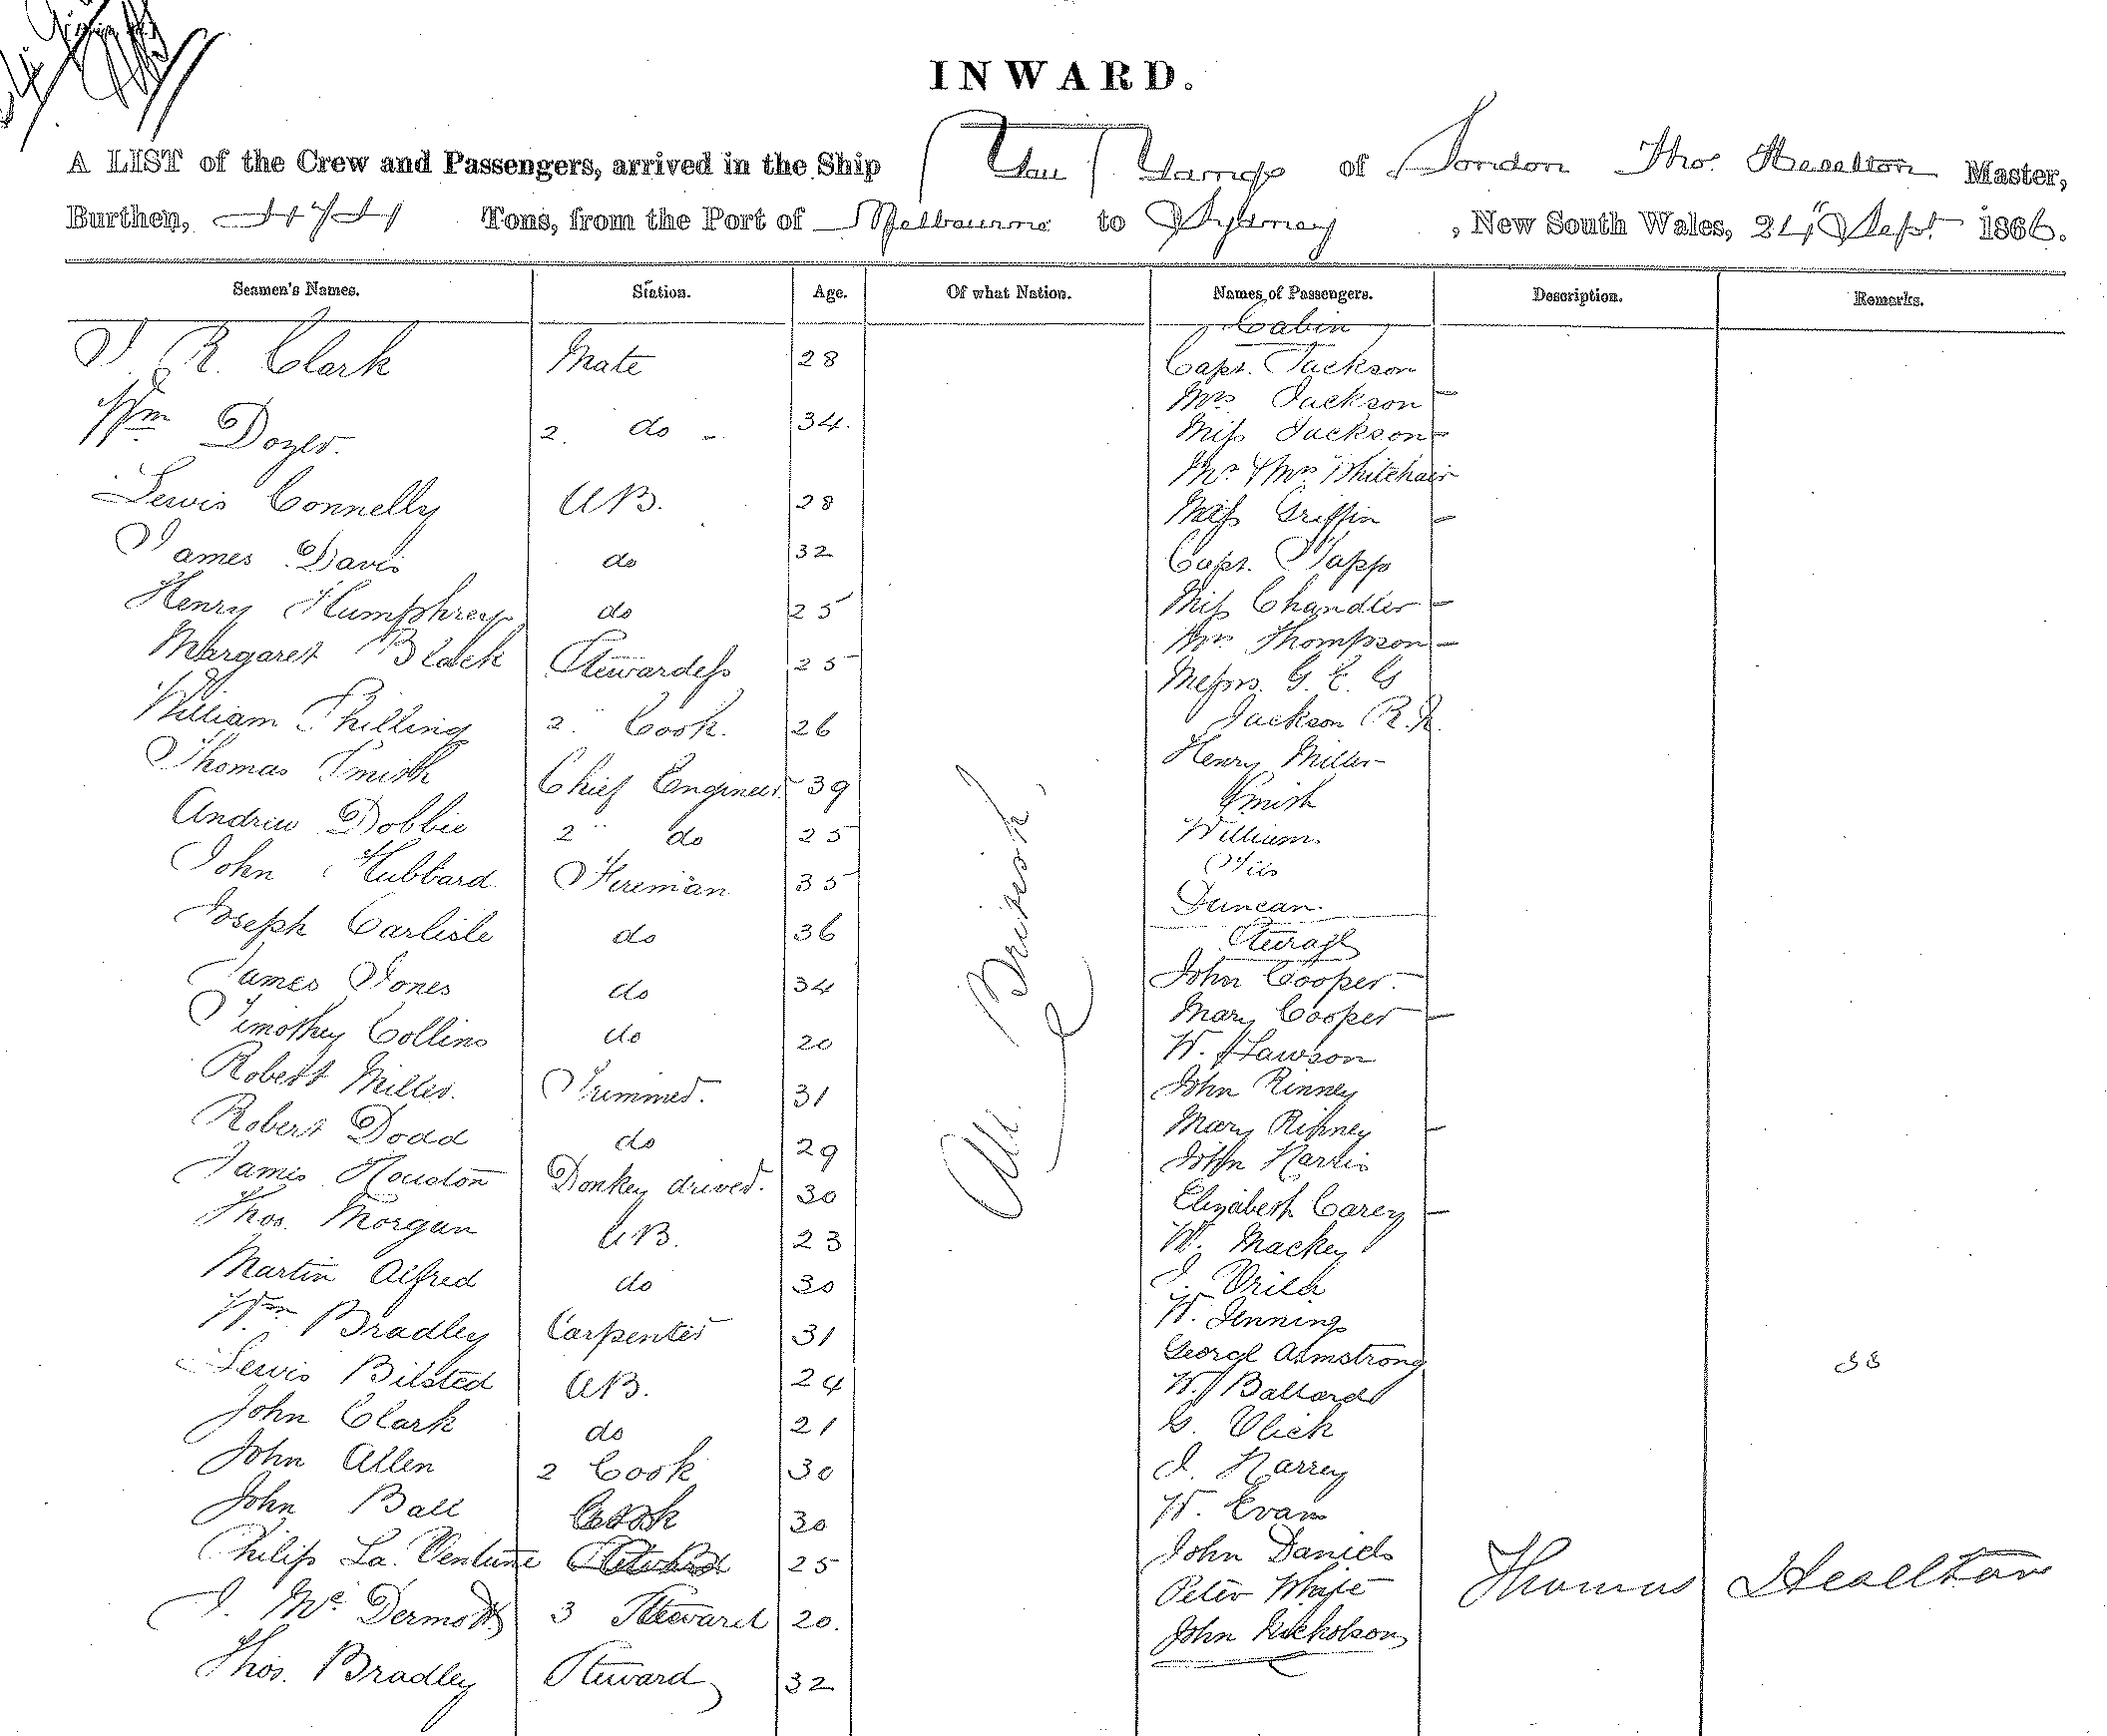 INWARD.
A LIST of the Crew and Passengers, arrived in the Ship You Yangs of London Thos. Heselton Master,
Burthen, Tons, from the Port of Melbourne to Sydney, New South Wales, 24" Sept 1866.
Seamen's Names. Station. Age. Of what Nation. Names of Passengers. Description. Remarks.
Cabin
R. Clark Mate 28 Capt. Jackson
Mrs Jackson
Wm 2. do 34. Miss Jackson
Mr & Mrs Whitehair
Lewis Connelly AB. 28 Miss Griffin
James Davis do 32 Capt. Tapp
Henry Humphreys do 25 Miss Chandler
Margaret Black Stewardess 25 Mrs Thompson
Messrs. G. E. G
William 2" Cook. 26 Jackson R.N.
Thomas Smith Chief Engineer 39 Henry Miller
Smith
Andrew Dobbie 2" do 25 Williams
John Hubbard Fireman 35
Duncan.
Joseph Carlisle do 36 Steerage
James Jones do 34 John Cooper.
Timothy Collins do 20 Mary Cooper
W. Lawson
Robert Miller. Trimmer. 31 John Kinney
Robert Dodd do 29 Mary Kinney
James Houston Donkey driver. 30 John Harris
Thos. Morgan AB. 23 Elizabeth Carey
W. Mackey
Martin Alfred do 30
Wm Bradley Carpenter 31 W. Jennings
George Armstrong 38
Lewis Bilsted AB. 24 W. Ballard
John Clark do 21 G.
John Allen 2 Cook 30 J.
John Ball Cook 30 W. Evans
Philip La. Venture 25 John Daniels
J. McDermott 3 Steward 20. Peter White
John Nicholson
Thos. Bradley Steward 32
All British
Thomas Heselton